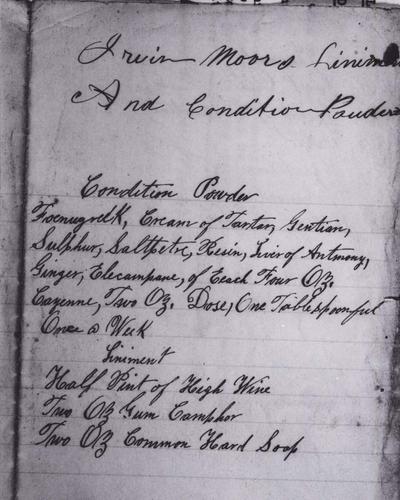 Irvin Moors Linim
And Condition Pouders
Condition Powder
Foenugrelk, Cream of Tartar, Gentian,
Sulphur, Saltpetre, Resin, Liver of Antmony,
Ginger, Elecampane, of Eeach Four Oz.
Cayenne, Two Oz. Dose, One Tablespoonful
Once a Week
Liniment
Half Pint of High Wine
Two Oz Gum Camphor
Two Oz Common Hard Soap